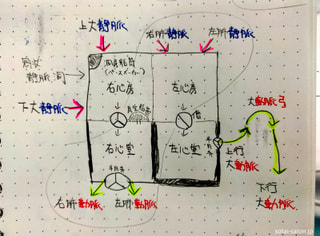 上大静脈
右肺静脈
左肺静脈
洞房結節
(ペースメーカー)
静脈洞
右心房
左心房
下大静脈
大動脈弓
右心室
左心室
上行
大動脈
右肺動脈
左肺動脈
下行
大動脈